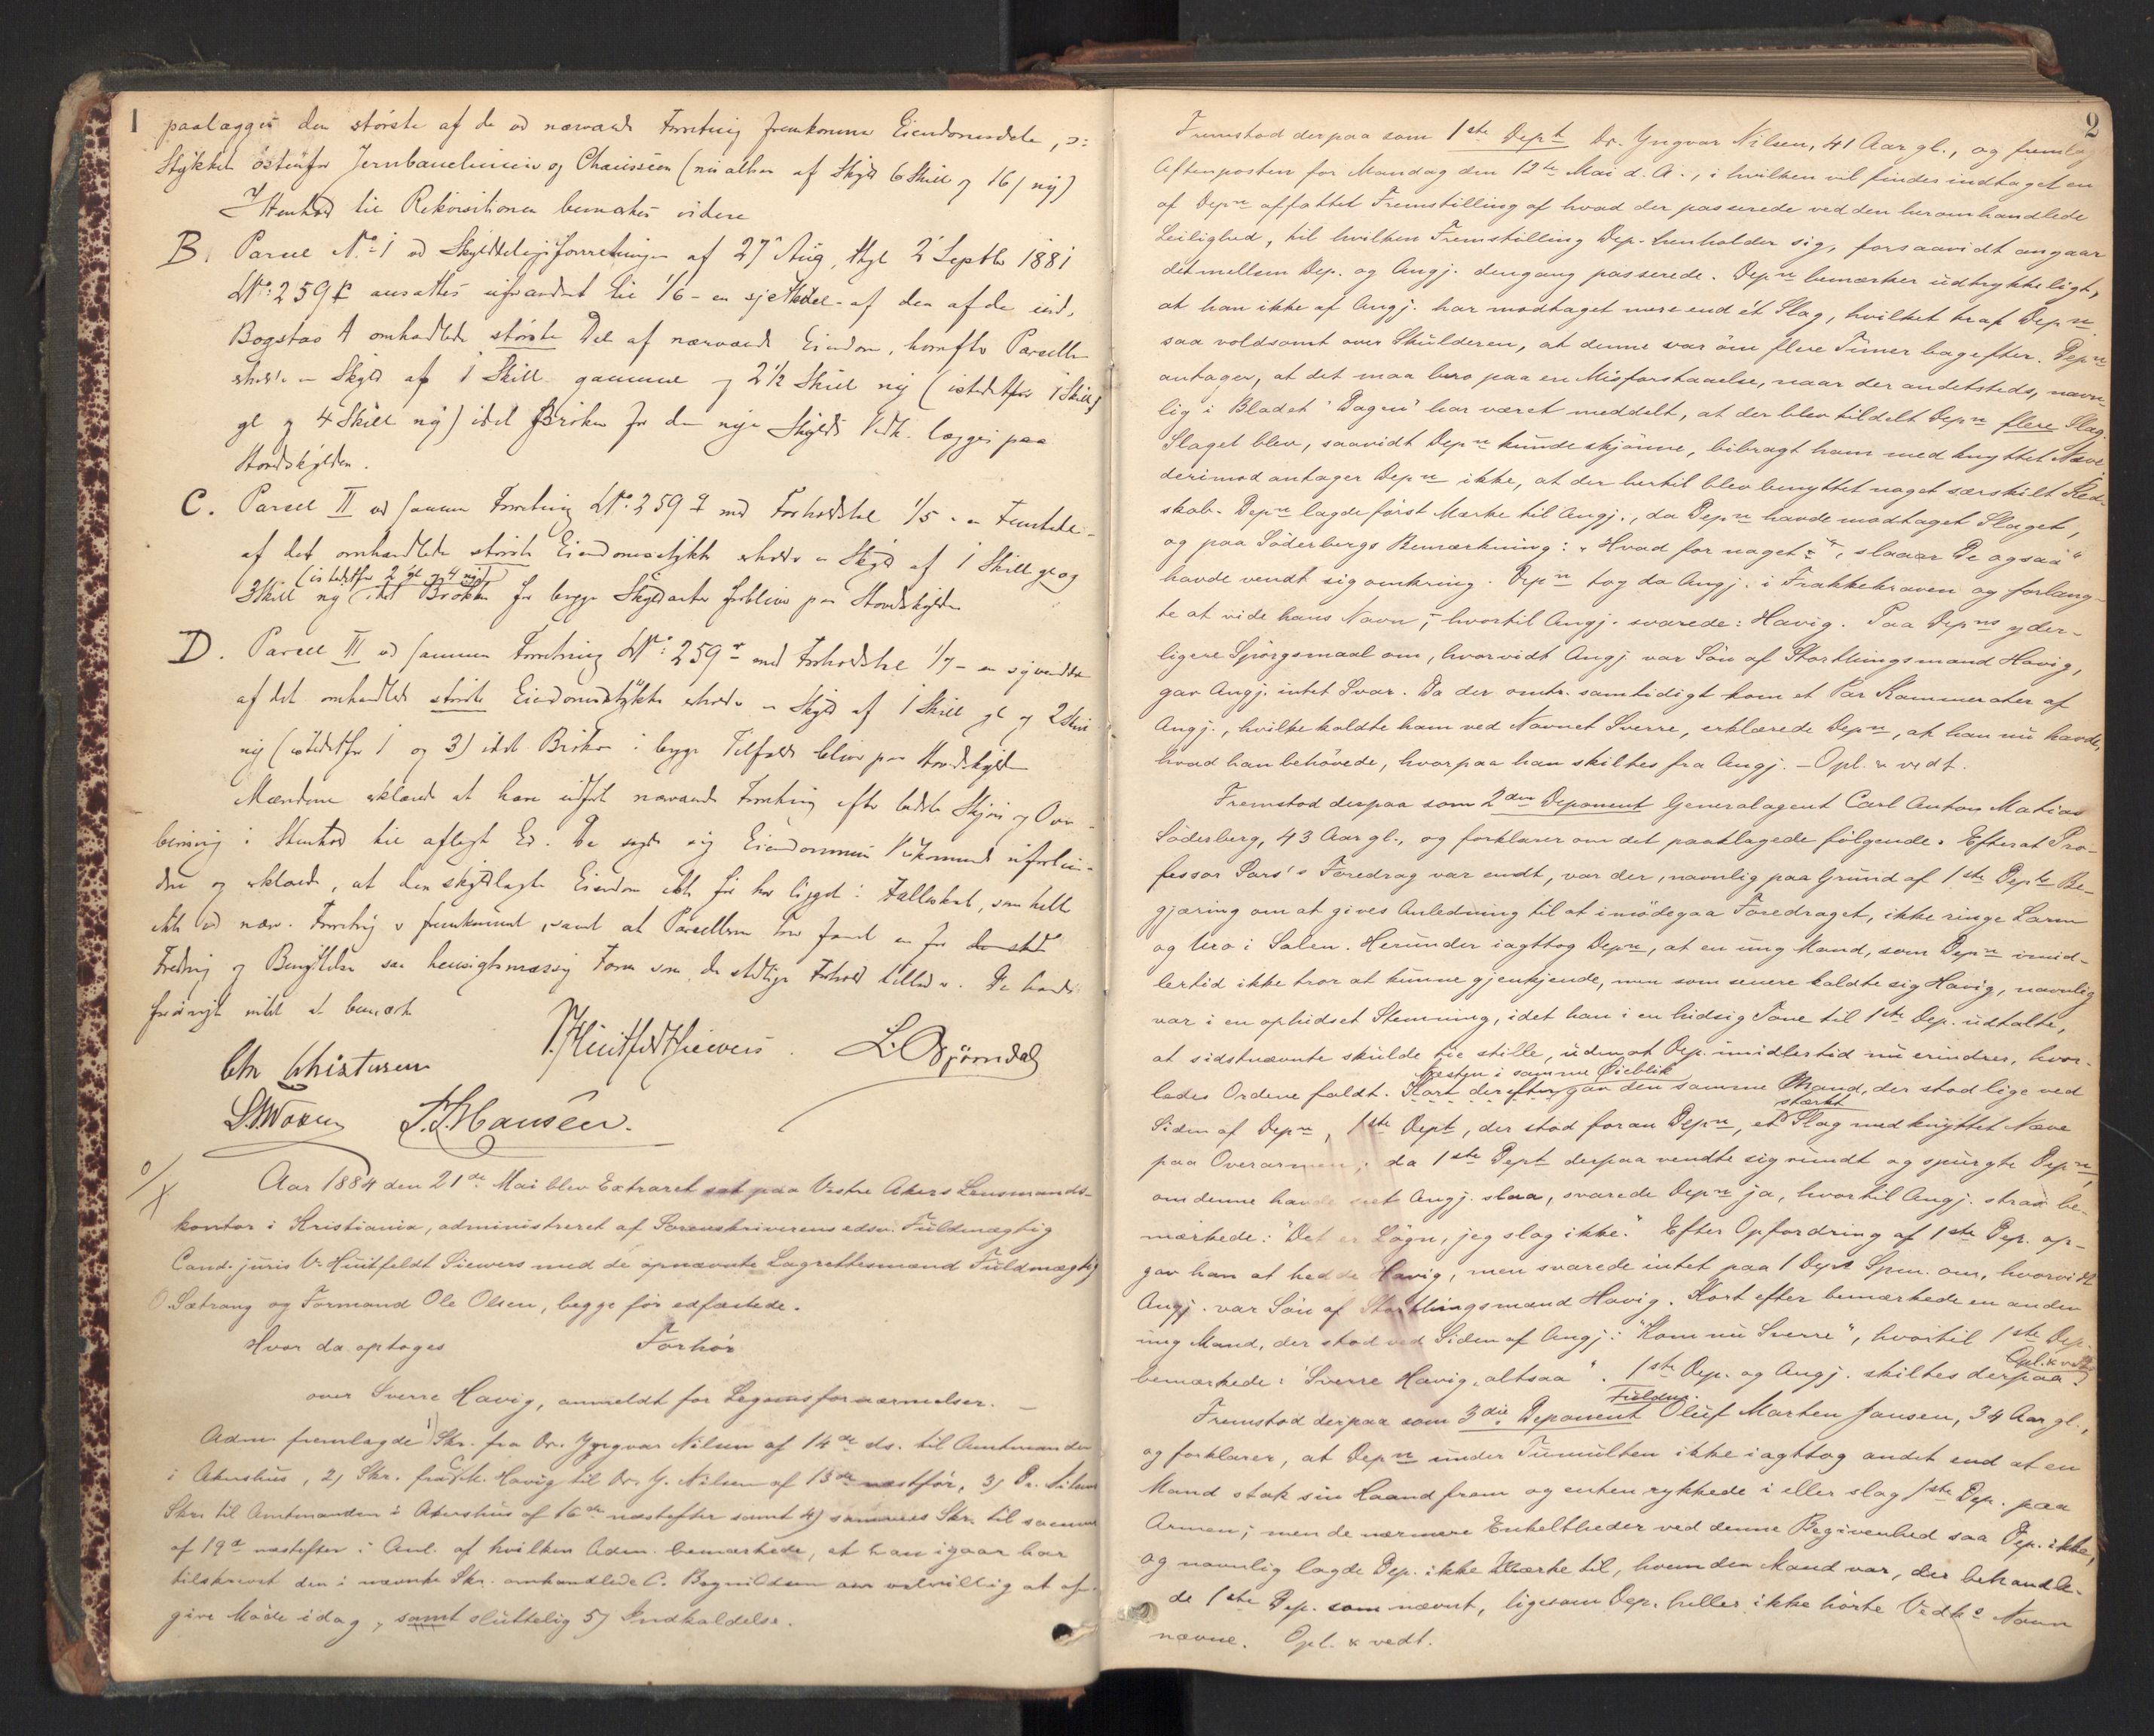 1
paalægges den største af de ved nærværende Forretning fremkomne Eiendomsdele, ɔ:
Stykket østenfor Jernbanelinien og Chausseen (nu altsaa af Skyld 6 Skill og 16 ny)
I Henhold til Rekvisitionen bemærkes videre
B. Parcel No 1 ved Skylddelingsforretningen af 27 Aug, thgl 2 Septbr 1881
LNo: 259 ansattes uforandret til 1/6 - en sjettedel - af den af de und.
Bogstav A omhandlede største Del af nærværende Eiendom, hvorefter Parcellen
erholder en Skyld af 1 Skill. gammel og 2½ Skill ny (istedetfor 1 Skill
gl og 4 Skill ny) idet Brøken for den nye Skylds Vedk. lægges paa
Hovedskylden.
C. Parcel II ved samme Forretning LNo: 259 med Forholdstal 1/5 - en Femtedel -
af det omhandlede største Eiendomsstykke erholder en Skyld af 1 Skill gl og
(istedetfor 2 gl og 4 ny)
3 Skill ny idet Brøken for begge Skyldarter forbliver paa Hovedskylden
D. Parcel III ved samme Forretning LNo: 259 med Forholdstal 1/7 - en syvendedel
af det omhandlede største Eiendomsstykke erholder en Skyld af 1 Skill gl og 2 Skill
ny (istedetfor 1 og 3) idet Brøken i begge Tilfælde bliver paa Hovedskylden
Mændene erklærede at have udført nærværende Forretning efter bedste Skjøn og Over-
beviisning i Henhold til aflagt Ed. De sagde sig Eiendommen Vedkommende uforbun-
dne og erklærede, at den skyldlagte Eiendom ikke før har ligget i Fællesskab, som heller
ikke ved nærv. Forretning er fremkommet, samt at Parcellerne have faaet en for
Fredning og Benyttelse saa hensigtsmæssig Form som de stedlige Forhold tillader. De havde
forøvrigt intet at bemærke
Chr Christensen V. Huitfeldt Siewers. L. Bjørndal
J. J. Hansen.
Aar 1884 den 21de Mai blev Extraret sat paa Vestre Akers Lensmands-
kontor i Kristiania, administreret af Sorenskriverens edsv. Fuldmægtig
Cand. juris V. Huitfeldt Siewers med de opnævnte Lagrettesmænd Fuldmægtig
O. Sætrang og Formand Ole Olsen, begge før edfæstede.
Hvor da optoges Forhør
over Sverre Havig, anmeldt for Legemsfornærmelser. —
Adm. fremlagde 1) Skr. fra Dr. Yngvar Nilsen af 14de ds. til Amtmanden
i Akershus, 2) Skr. fra Havig til Dr. Y. Nilsen af 13de næstfør, 3) Dr. Nilsens
Skr. til Amtmanden i Akershus af 16de næstefter samt 4) sammes Skr. til samme
af 19de næstefter i Anl. af hvilken Adm. bemærkede, at han igaar har
tilskrevet den i nævnte Skr. omhandlede C. Bognildsen om velvillig at af-
give Møde idag, samt sluttelig 5) Indkaldelse.
2
Fremstod derpaa som 1ste Dept Dr. Yngvar Nilsen, 41 Aar gl., og fremlag
Aftenposten for Mandag den 12te Mai d. A., i hvilken vil findes indtaget en
af Depn affattet Fremstilling af hvad der passerede ved den heromhandlede
Leilighed, til hvilken Fremstilling Dep. henholder sig, forsaavidt angaar
det mellem Dep. og Angj. dengang passerede. Depn bemærker udtrykkeligt,
at han ikke af Angj. har modtaget mere end ét Slag, hvilket traf Depn
saa voldsomt over Skulderen, at denne var øm flere Timer bagefter. Depn
antager, at det maa bero paa en Misforstaaelse, naar der andetsteds, navn-
lig i Bladet "Dagen" har været meddelt, at der blev tildelt Depn flere Slag.
Slaget blev, saavidt Depn kunde skjønne, bibragt ham med knyttet Næve,
derimod antager Depn ikke, at der hertil blev benyttet noget særskilt Red-
skab. Depn lagde først Mærke til Angj., da Depn havde modtaget Slaget,
og paa Söderbergs Bemærkning: "Hvad for noget?", "slaaar De ogsaa"
havde vendt sig omkring. Depn tog da Angj. i Frakkekraven og forlang-
te at vide hans Navn, hvortil Angj. svarede: Havig. Paa Depns yder-
ligere Spørgsmaal om, hvorvidt Angj. var Søn af Storthingsmand Havig,
gav Angj. intet Svar. Da der omtr. samtidigt kom et Par Kammerater af
Angj., hvilke kaldte ham ved Navnet Sverre, erklærede Depn, at han nu havde,
hvad han behøvede, hvorpaa han skiltes fra Angj. — Opl. & vedt.
Fremstod derpaa som 2den Deponent Generalagent Carl Anton Mathias
Söderberg, 43 Aar gl., og forklarer om det paaklagede følgende. Efterat Pro-
fessor Sars's Foredrag var endt, var der, navnlig paa Grund af 1ste Depts Be-
gjæring om at gives Anledning til at imødegaa Foredraget, ikke ringe Larm
og Uro i Salen. Herunder iagttog Depn, at en ung Mand, som Depn imid-
lertid ikke tror at kunne gjenkjende, men som senere kaldte sig Havig, navnlig
var i en ophidset Stemning, idet han i en hidsig Tone til 1ste Dep. udtalte,
at sidstnævnte skulde tie stille, uden at Dep. imidlertid nu erindrer, hvor-
Næsten i samme Øieblik
ledes Ordene faldt. Kort derefter gav den samme Mand, der stod lige ved
stærkt
Siden af Depn, 1ste Dept, der stod foran Depn, et Slag med knyttet Næve
paa Overarmen; da 1ste Dept derpaa vendte sig rundt og spurgte Depn,
om denne havde seet Angj. slaa, svarede Depn ja, hvortil Angj. strax be-
mærkede: "Det er Løgn, jeg slog ikke." Efter Opfordring af 1ste Dep. op-
gav han at hedde Havig, men svarede intet paa 1 Deps Spm. om, hvorvidt
Angj. var Søn af Storthingsmand Havig. Kort efter bemærkede en anden
ung Mand, der stod ved Siden af Angj.: "Kom nu Sverre", hvortil 1ste Dep.
bemærkede: "Sverre Havig, altsaa". 1ste Dep. og Angj. skiltes derpaa. Opl. & vedt.
Fuldm.
Fremstod derpaa som 3die Deponent Oluf Marten Jansen, 34 Aar gl.,
og forklarer, at Depn under Tumulten ikke iagttog andet end at en
Mand stak sin Haand frem og enten rykkede i eller slog 1ste Dep. paa
Armen; men de nærmere Enkeltheder ved denne Begivenhed saa Dep. ikke,
og navnlig lagde Dep. ikke Mærke til, hvem den Mand var, der behandle-
de 1ste Dep. som nævnt, ligesom Dep. heller ikke hørte Vedks Navn
nævne. Opl. & vedt.